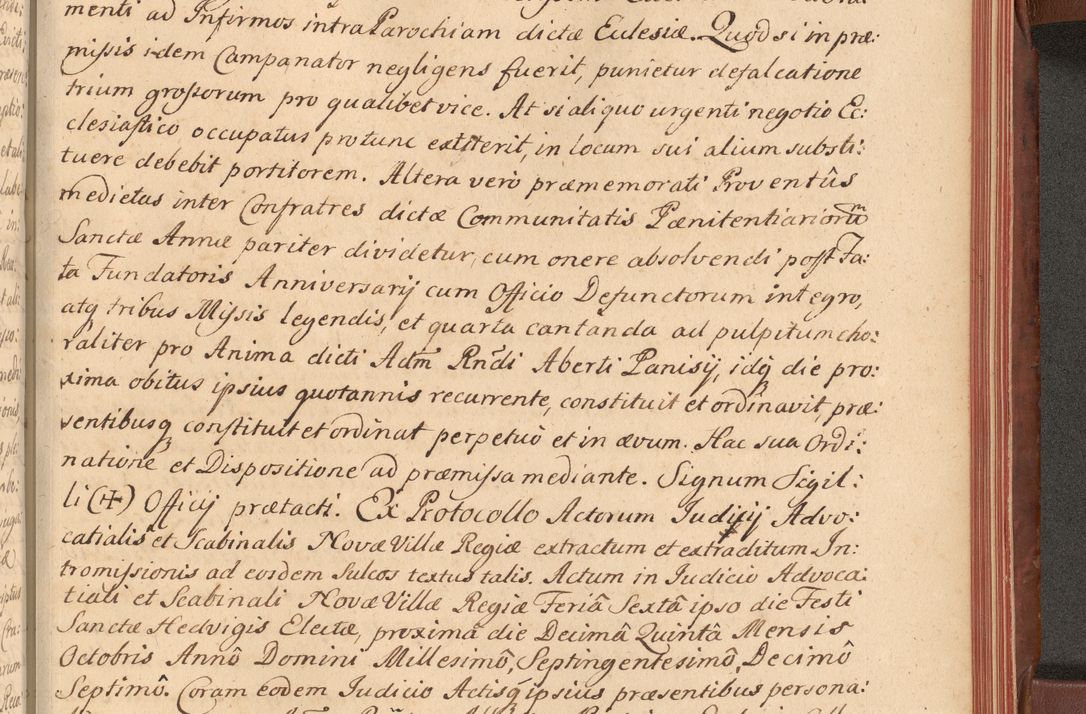 menti ad Infirmos intra Parochiam dictæ Eulesiæ. Quod si in præ:
missis idem Campanator negligens fuerit, punietur defalcatione
trium grossorum pro qualibet vice. At si aliquo urgenti negotio Ec:
clesiastico occupatus protunc extiterit, in locum sui alium substi:
tuere debebit portitorem. Altera verò præmemorati Proventûs
medietas inter Confratres dictæ Communitatis Pænitentiariorũ
Sanctæ Annæ pariter dividetur, cum onere absolvendi post Fa:
ta Fundatoris Anniversarij cum Officio Defunctorum integro,
atq tribus Missis legendis, et quarta cantanda ad pulpitum cho:
raliter pro Anima dicti Adm̃ Rñdi Aberti Panisij, idq die pro:
xima obitus ipsius quotannis recurrente, constituit et ordinavit præ:
sentibusq constituit et ordinat perpetuò et in ævum. Hac sua Ordi:
natione et Dispositione ad præmissa mediante. Signum Sigil:
li (✠) Officij prætacti. Ex Protocollo Actorum Judicij Advo:
catialis et Scabinalis Novæ Villæ Regiæ extractum et extraditum In:
tromissionis ad eosdem Sulcos textus talis. Actum in Judicio Advoca:
tiali et Scabinali Novæ Villæ Regiæ Feriâ Sextâ ipso die Festi
Sanctæ Hedvigis Electæ, proximâ die Decimâ Quintâ Mensis
Octobris Annô Domini Millesimô, Septingentesimô, Decimô
Septimô. Coram eodem Judicio Actisq ipsius præsentibus persona: